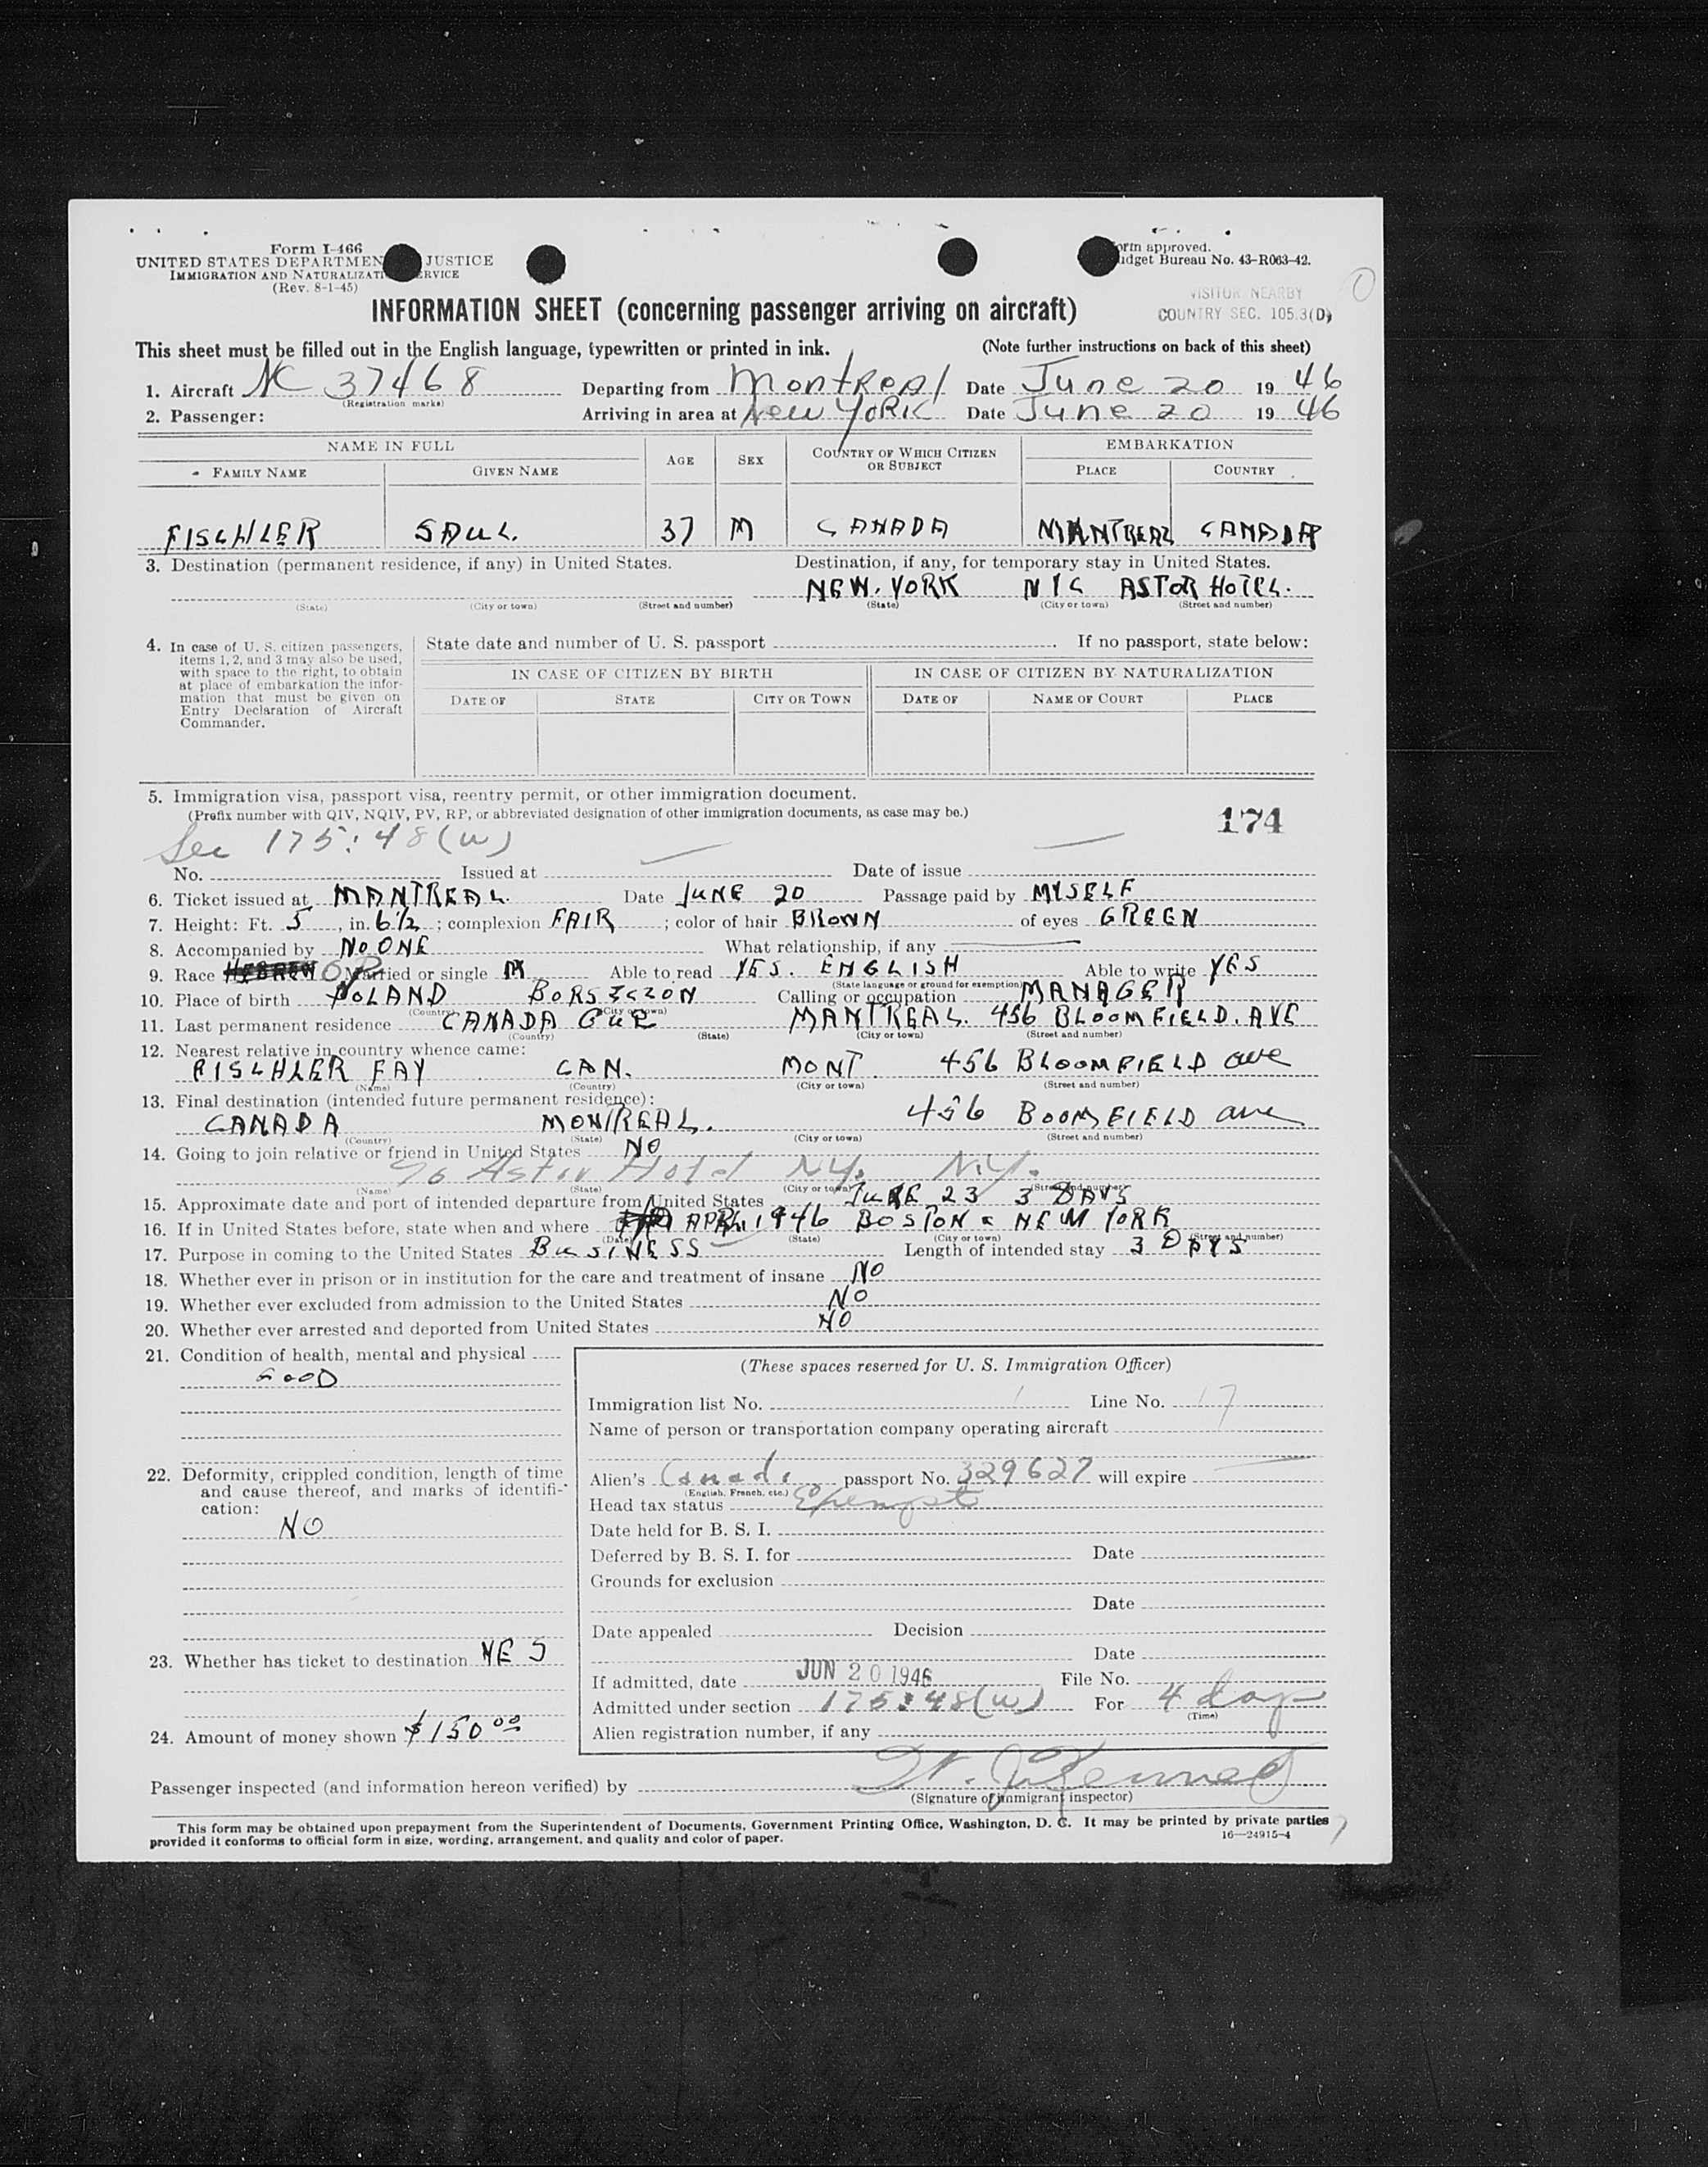 Form I-466
UNITED STATES DEPARTMEN JUSTICE
IMMIGRATION AND NATURALIZATI ERVICE
(Rev. 8-1-45)
orm approved.
udget Bureau No. 43-R063-42.
VISITOR NEARBY
COUNTRY SEC. 105.3(D)
INFORMATION SHEET (concerning passenger arriving on aircraft)
This sheet must be filled out in the English language, typewritten or printed in ink. (Note further instructions on back of this sheet)
1. Aircraft NC 37468 Departing from Montreal Date June 20 19 46
(Registration marks)
2. Passenger: Arriving in area at New York Date June 20 19 46
NAME IN FULL AGE SEX COUNTRY OF WHICH CITIZEN OR SUBJECT EMBARKATION
FAMILY NAME GIVEN NAME PLACE COUNTRY
FISCHLER SAUL. 37 M CANADA MANTREAL CANADA
3. Destination (permanent residence, if any) in United States. Destination, if any, for temporary stay in United States.
NEW. YORK NYC ASTOR HOTEL.
(State) (City or town) (Street and number) (State) (City or town) (Street and number)
4. In case of U. S. citizen passengers, items 1, 2, and 3 may also be used, with space to the right, to obtain at place of embarkation the information that must be given on Entry Declaration of Aircraft Commander.
State date and number of U. S. passport If no passport, state below:
IN CASE OF CITIZEN BY BIRTH IN CASE OF CITIZEN BY NATURALIZATION
DATE OF STATE CITY OR TOWN DATE OF NAME OF COURT PLACE
5. Immigration visa, passport visa, reentry permit, or other immigration document.
(Prefix number with QIV, NQIV, PV, RP, or abbreviated designation of other immigration documents, as case may be.)
174
Sec 175:48(w)
No. Issued at Date of issue
6. Ticket issued at MANTREAL. Date JUNE 20 Passage paid by MYSELF
7. Height: Ft. 5, in. 6½; complexion FAIR; color of hair BROWN of eyes GREEN
8. Accompanied by NO ONE What relationship, if any
9. Race HEBREW Married or single M Able to read YES. ENGLISH Able to write YES
(State language or ground for exemption)
10. Place of birth POLAND Calling or occupation MANAGER
(Country) (City or town)
11. Last permanent residence CANADA QUE MANTREAL. 456 BLOOMFIELD. AVE
(Country) (State) (City or town) (Street and number)
12. Nearest relative in country whence came:
FISCHLER FAY CAN. MONT. 456 BLOOMFIELD ave
(Name) (Country) (City or town) (Street and number)
13. Final destination (intended future permanent residence):
CANADA MONTREAL. 456 BOOMFIELD ave
(Country) (State) (City or town) (Street and number)
14. Going to join relative or friend in United States NO
℅ Astor Hotel NY. N.Y.
(Name) (State) (City or town) (Street and number)
15. Approximate date and port of intended departure from United States JUNE 23 3 DAYS
16. If in United States before, state when and where APR. 1946 BOSTON & NEW YORK
(Date) (State) (City or town) (Street and number)
17. Purpose in coming to the United States BUSINESS Length of intended stay 3 DAYS
18. Whether ever in prison or in institution for the care and treatment of insane NO
19. Whether ever excluded from admission to the United States NO
20. Whether ever arrested and deported from United States NO
21. Condition of health, mental and physical
GOOD
22. Deformity, crippled condition, length of time and cause thereof, and marks of identification:
NO
23. Whether has ticket to destination YES
24. Amount of money shown $150 00
(These spaces reserved for U. S. Immigration Officer)
Immigration list No. 1 Line No. 17
Name of person or transportation company operating aircraft
Alien's Canada passport No. 329627 will expire
(English, French, etc.)
Head tax status Exempt
Date held for B. S. I.
Deferred by B. S. I. for Date
Grounds for exclusion
Date
Date appealed Decision
Date
If admitted, date JUN 20 1946 File No.
Admitted under section 175:48(w) For 4 day
(Time)
Alien registration number, if any
Passenger inspected (and information hereon verified) by
(Signature of immigrant inspector)
This form may be obtained upon prepayment from the Superintendent of Documents, Government Printing Office, Washington, D. C. It may be printed by private parties
provided it conforms to official form in size, wording, arrangement, and quality and color of paper. 16—24915-4